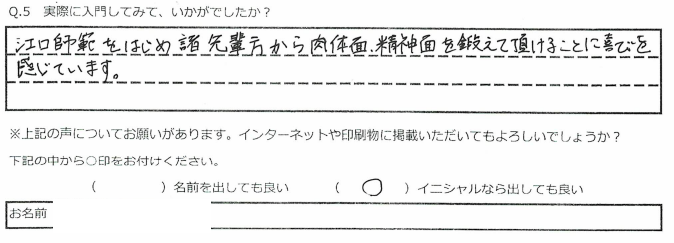 Q.5 実際に入門してみて、いかがでしたか？
江口師範をはじめ諸先輩方から肉体面、精神面を鍛えて頂けることに喜びを
感じています。
※上記の声についてお願いがあります。インターネットや印刷物に掲載いただいてもよろしいでしょうか？
下記の中から○印をお付けください。
（　　　　）名前を出しても良い　　（　○　）イニシャルなら出しても良い
お名前